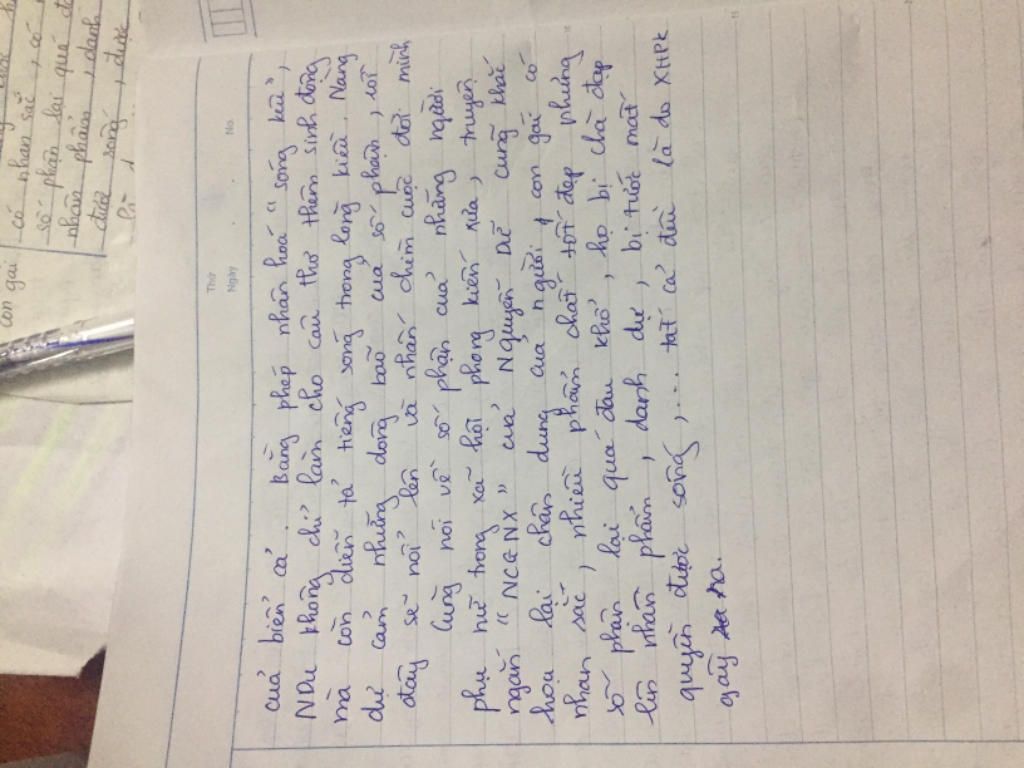 Thứ
Ngày
No.
của biển cả. Bằng phép nhân hoá "sóng kêu",
NDu không chỉ làm cho câu thơ thêm sinh động
mà còn diễn tả tiếng sóng trong lòng kiều. Nàng
dự cản những dông bão của số phận, rồi
đây sẽ nổi lên và nhấn chìm cuộc đời mình
Cùng nói về số phận của những người
phụ nữ trong xã hội phong kiến xưa, truyện
ngắn "NCGNX" của Nguyễn Dữ cũng khắc
hoạ lại chân dung của người 1 con gái có
nhan sắc, nhiều phẩm chất tốt đẹp nhưng
số phận lại quá đau khổ, họ bị chà đạp
lên nhân phẩm, danh dự, bị tước mất
quyền được sống,... tất cả đều là do XHPK
gây ra.
con gái
có nhan sắc, có n
số phận lại quá đ
nhân phẩm, danh
được sống, được